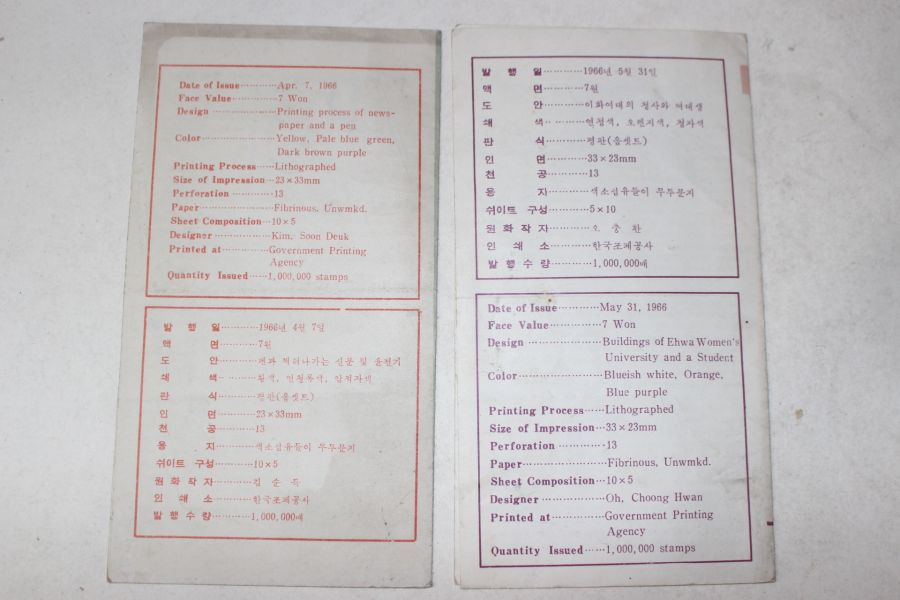 Date of Issue··········Apr. 7, 1966
Face Value············7 Won
Design ·················Printing process of news-
paper and a pen
Color···················Yellow, Pale blue green,
Dark brown purple
Printing Process·····Lithographed
Size of Impression···23×33mm
Perforation ···········13
Paper···················Fibrinous, Unwmkd.
Sheet Composition···10×5
Designer ···············Kim, Soon Deuk
Printed at ············Government Printing
Agency
Quantity Issued ·····1,000,000 stamps
발 행 일···········1966년 4월 7일
액 면···········7원
도 안···········펜과 찍혀나가는 신문 및 윤전기
쇄 색···········황색, 연청록색, 암적자색
판 식···········평판(옵셋트)
인 면···········23×33mm
천 공···········13
용 지···········색소섬유들이 무투문지
쉬이트 구성···········10×5
원 화 작 자···········김 순 득
인 쇄 소···········한국조폐공사
발 행 수 량···········1,000,000매
발 행 일···········1966년 5월 31일
액 면···········7원
도 안···········이화여대의 청사와 여대생
쇄 색···········연청색, 오렌지색, 청자색
판 식···········평판(옵셋트)
인 면···········33×23mm
천 공···········13
용 지···········색소섬유들이 무투문지
쉬이트 구성···········5×10
원 화 작 자···········오 충 환
인 쇄 소···········한국조폐공사
발 행 수 량···········1,000,000매
Date of Issue··········May 31, 1966
Face Value············7 Won
Design ·················Buildings of Ehwa Women's
University and a Student
Color···················Blueish white, Orange,
Blue purple
Printing Process·····Lithographed
Size of Impression···33×23mm
Perforation ···········13
Paper···················Fibrinous, Unwmkd.
Sheet Composition···10×5
Designer ···············Oh, Choong Hwan
Printed at ············Government Printing
Agency
Quantity Issued ·····1,000,000 stamps